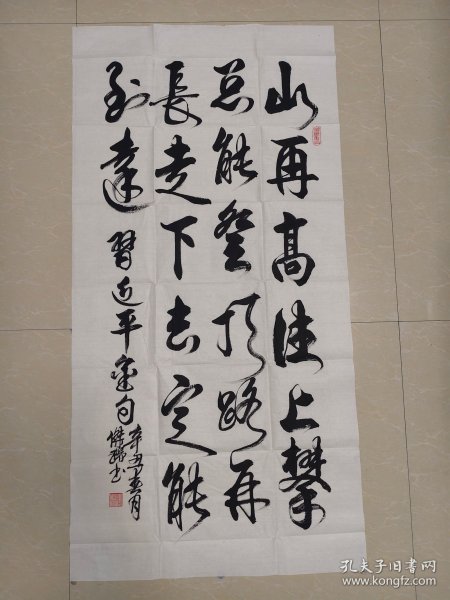 山再高往上攀
总能登顶路再
長走下去定能
到達 習近平金句
辛丑春月
書
孔夫子旧书网
www.kongfz.com